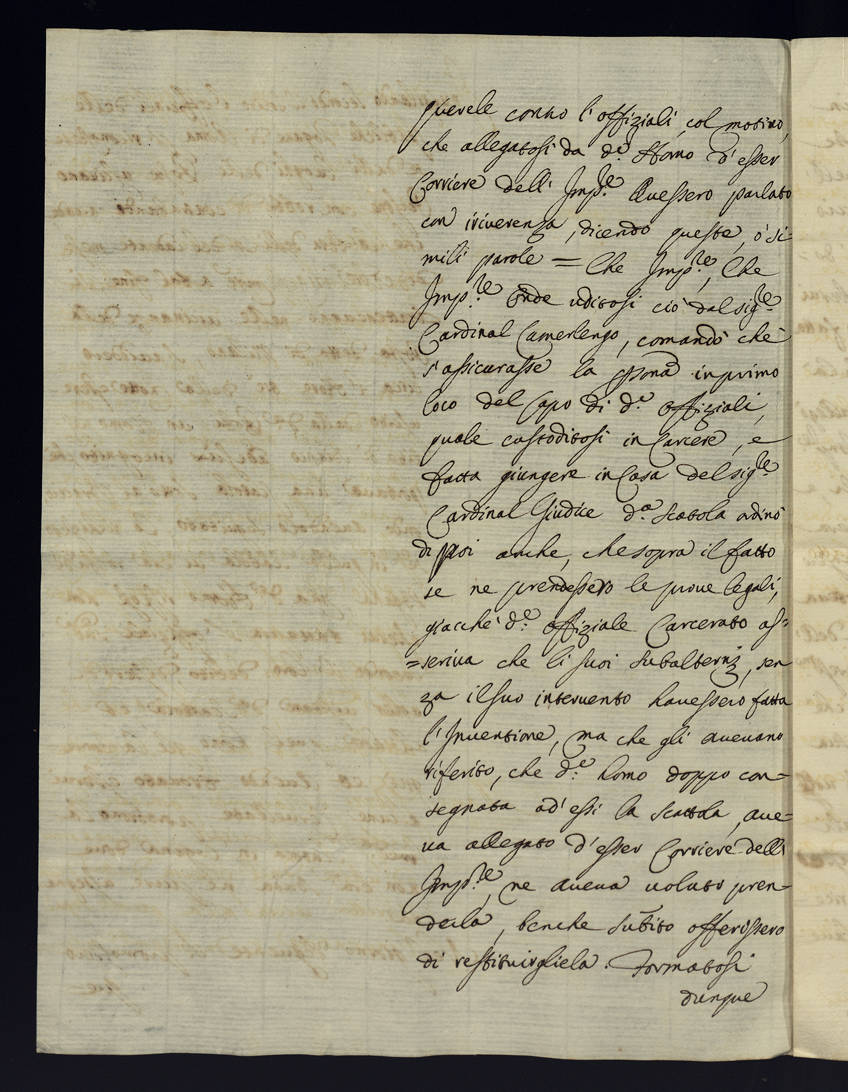 querele contro l'offiziali, col motivo,
che allegatosi da d.º Homo d'esser
Corriere dell'Imp.re Avessero parlato
con iriverenza, dicendo queste, ò si-
mili parole = Che Imp.re, Che
Imp.re Onde uditosi ciò dal sig.re
Cardinal Camerlengo, comandò che
s'assicurasse la psona in primo
loco del Capo di d.i offiziali,
quale custoditosi in Carcere, e
fatta giungere in Casa del sig.re
Cardinal Giudice d.a scatola ordinò
di poi anche, che sopra il fatto
se ne prendessero le prove legali,
giacchè d.º offiziale Carcerato as=
=seriva che li suoi subalterni, sen
za il suo intervento havessero fatta
l'Inventione, ma che gli avevano
riferito, che d.º homo doppo con=
segnata ad'essi la scattola, ave=
va allegato d'esser Corriere dell'
Imp.re, ne aveva voluto pren=
derla, benche subito offerissero
di restituirgliela. Formatosi
dunque